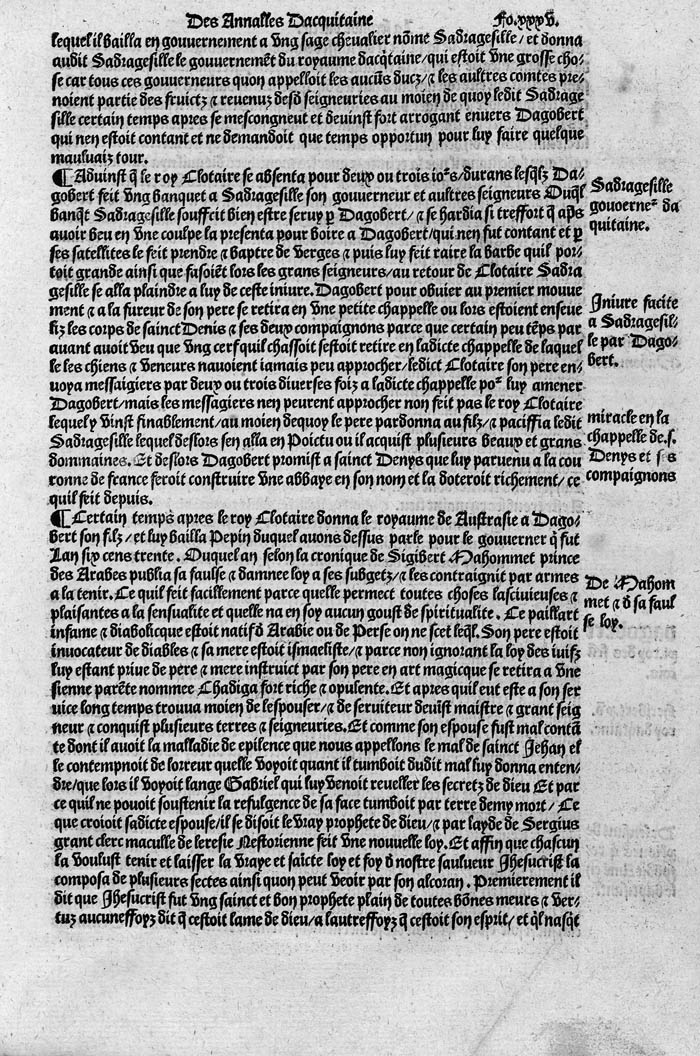 Des Annalles Dacquitaine
Fo.xxxv.
lequel il bailla en gouvernement a vng sage chevalier nōme Sadragesille/ et donna
audit Sadragesille le gouvernemēt du royaume dacq̄taine/qui estoit vne grosse cho-
se car tous ces gouverneurs quon appelloit les aucūs ducz/⁊ les aultres comtes pre-
noient partie des fruictz ⁊ revenuz desd seigneuries au moien de quoy ledit Sadrage
sille certain temps apres se mescongneut et devinst fort arrogant envers Dagobert
qui nen estoit contant et ne demandoit que temps opportun pour luy faire quelque
maulvaiz tour.
¶ Advinst q̄ le roy Clotaire se absenta pour deux ou trois iors/durans lesq̄lz Da-
gobert feit vng banquet a Sadragesille son gouverneur et aultres seigneurs Ouq̄l
banq̄t Sadragesille souffrit bien estre seruy ꝑ Dagobert/ ⁊ se hardia si treffort q̄ apꝭs
avoir beu en vne coulpe la presenta pour boire a Dagobert/qui nen fut contant et ꝑ
ses satellites le feit prendre ⁊ baptre de verges ⁊ puis luy feit raire la barbe quil por-
toit grande ainsi que fasoiēt lors les grans seigneurs/au retour de Clotaire Sadra
gesille se alla plaindre a luy de ceste iniure. Dagobert pour obuier au premier mouue
ment ⁊ a la fureur de son pere se retira en vne petite chappelle ou lors estoient enseue
liz les corps de sainct Denis ⁊ ses deux compaignons parce que certain peu tēps par
avant avoit veu que vng cerf quil chassoit sestoit retire en ladicte chappelle de laquel
le les chiens ⁊ veneurs navoient iamais peu approcher/ledict Clotaire son pere en-
voya messaigiers par deux ou trois diverses foiz a ladicte chappelle por luy amener
Dagobert/mais les messagiers nen peurent approcher non feit pas le roy Clotaire
lequel y vinst finablement/au moien dequoy le pere pardonna au filz/⁊ paciffia ledit
Sadragesille lequel deslors sen alla en Poictu ou il acquist plusieurs beaux et grans
dommaines. Et deslors Dagobert promist a sainct Denys que luy parvenu a la cou
ronne de france feroit construire vne abbaye en son nom et la doteroit richement/ ce
quil feit depuis.
¶ Certain temps apres le roy Clotaire donna le royaume de Austrasie a Dago-
bert son filz/ et luy bailla Pepin duquel avons dessus parle pour le gouverner q̄ fut
Lan six cens trente. Ouquel an selon la cronique de Sigibert Mahommet prince
des Arabes publia sa faulse ⁊ damnee loy a ses subgetz/⁊ les contraignit par armes
a la tenir. Ce quil feit facillement parce quelle permect toutes choses lascivieuses ⁊
plaisantes a la sensualite et quelle na en soy aucun goust de spiritualite. Ce paillart
infame ⁊ diabolicque estoit natif d̄ Arabie ou de Perse on ne scet leq̄l. Son pere estoit
invocateur de diables ⁊ sa mere estoit ismaeliste/⁊ parce non ignorant la loy des iuifz
luy estant prive de pere ⁊ mere instruict par son pere en art magicque se retira a vne
sienne parēte nommee Chadiga fort riche ⁊ opulente. Et apres quil eut este a son ser
vice long temps trouva moien de lespouser/⁊ de serviteur devīst maistre ⁊ grant seig
neur ⁊ conquist plusieurs terres ⁊ seigneuries. Et comme son espouse fust mal contā
te dont il avoit la malladie de epilence que nous appellons le mal de sainct Jehan el
le contempnoit de lorreur quelle voyoit quant il tumboit dudit mal luy donna enten-
dre/que lors il voyoit lange Gabriel qui luy venoit reveller les secretz de dieu Et par
ce quil ne povoit soustenir la refulgence de sa face tumboit par terre demy mort/ Ce
que croioit sadicte espouse/il se disoit le vray prophete de dieu/⁊ par layde de Sergius
grant clerc maculle de leresie Nestorienne feit vne nouvelle loy. Et affin que chascun
la voulust tenir et laisser la vraye et saīcte loy et foy d̄ nostre saulueur Jhesucrist la
composa de plusieurs sectes ainsi quon peut veoir par son alcoran. Premierement il
dit que Jhesucrist fut vng sainct et bon prophete plain de toutes bōnes meurs ⁊ ver-
tuz aucuneffoyz dit q̄ cestoit lame de dieu/a lautreffoyz q̄ cestoit son esprit/ et q̄l nasq̄t
Sadragesille
gouoerner da
quitaine.
Iniure faicte
a Sadragesil-
le par Dago-
bert.
miracle en la
chappelle de.s.
Denys et
compaignons
De Mahom
met ⁊ d̄ sa faul
se loy.